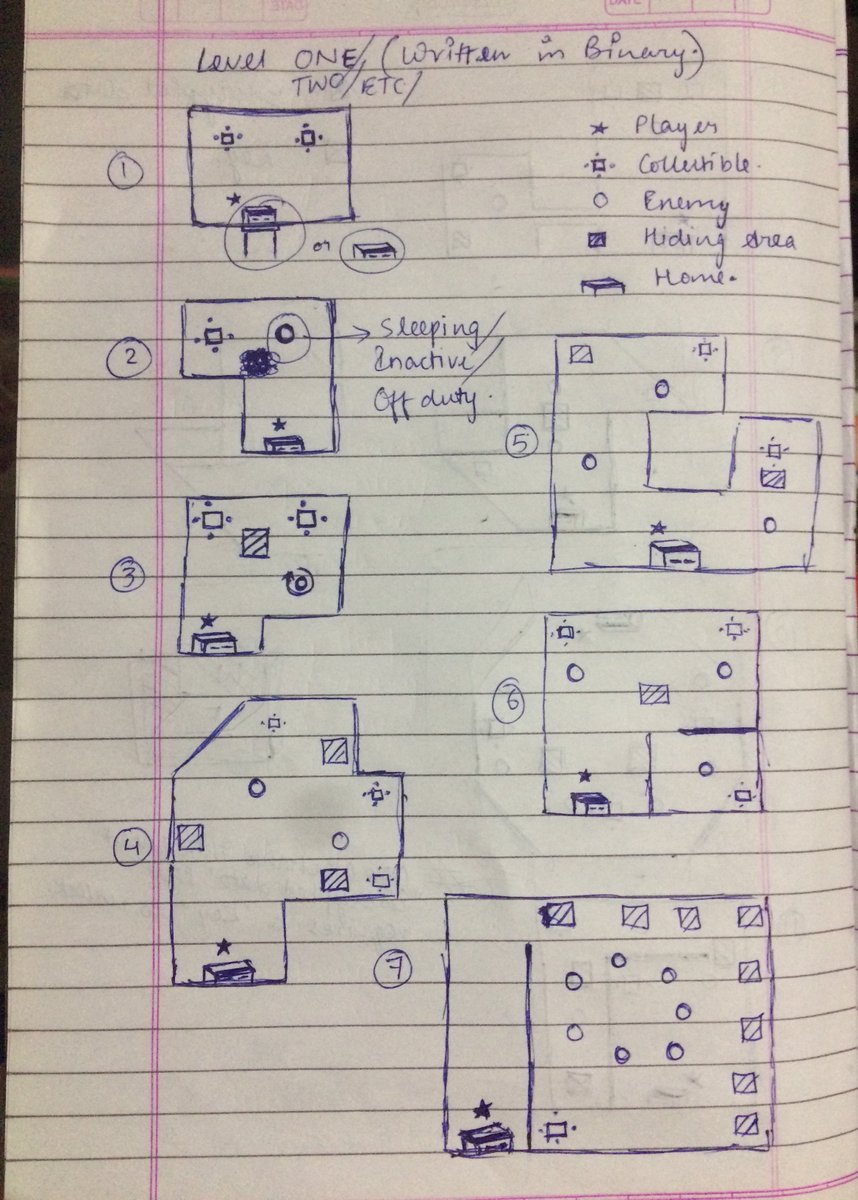 Level ONE/ (Written in Binary.)
TWO/ ETC/
Player
Collectible.
Enemy
Hiding Area
Home.
1
or
2
Sleeping/
Inactive/
Off duty.
3
4
5
6
7
DATE
DATE